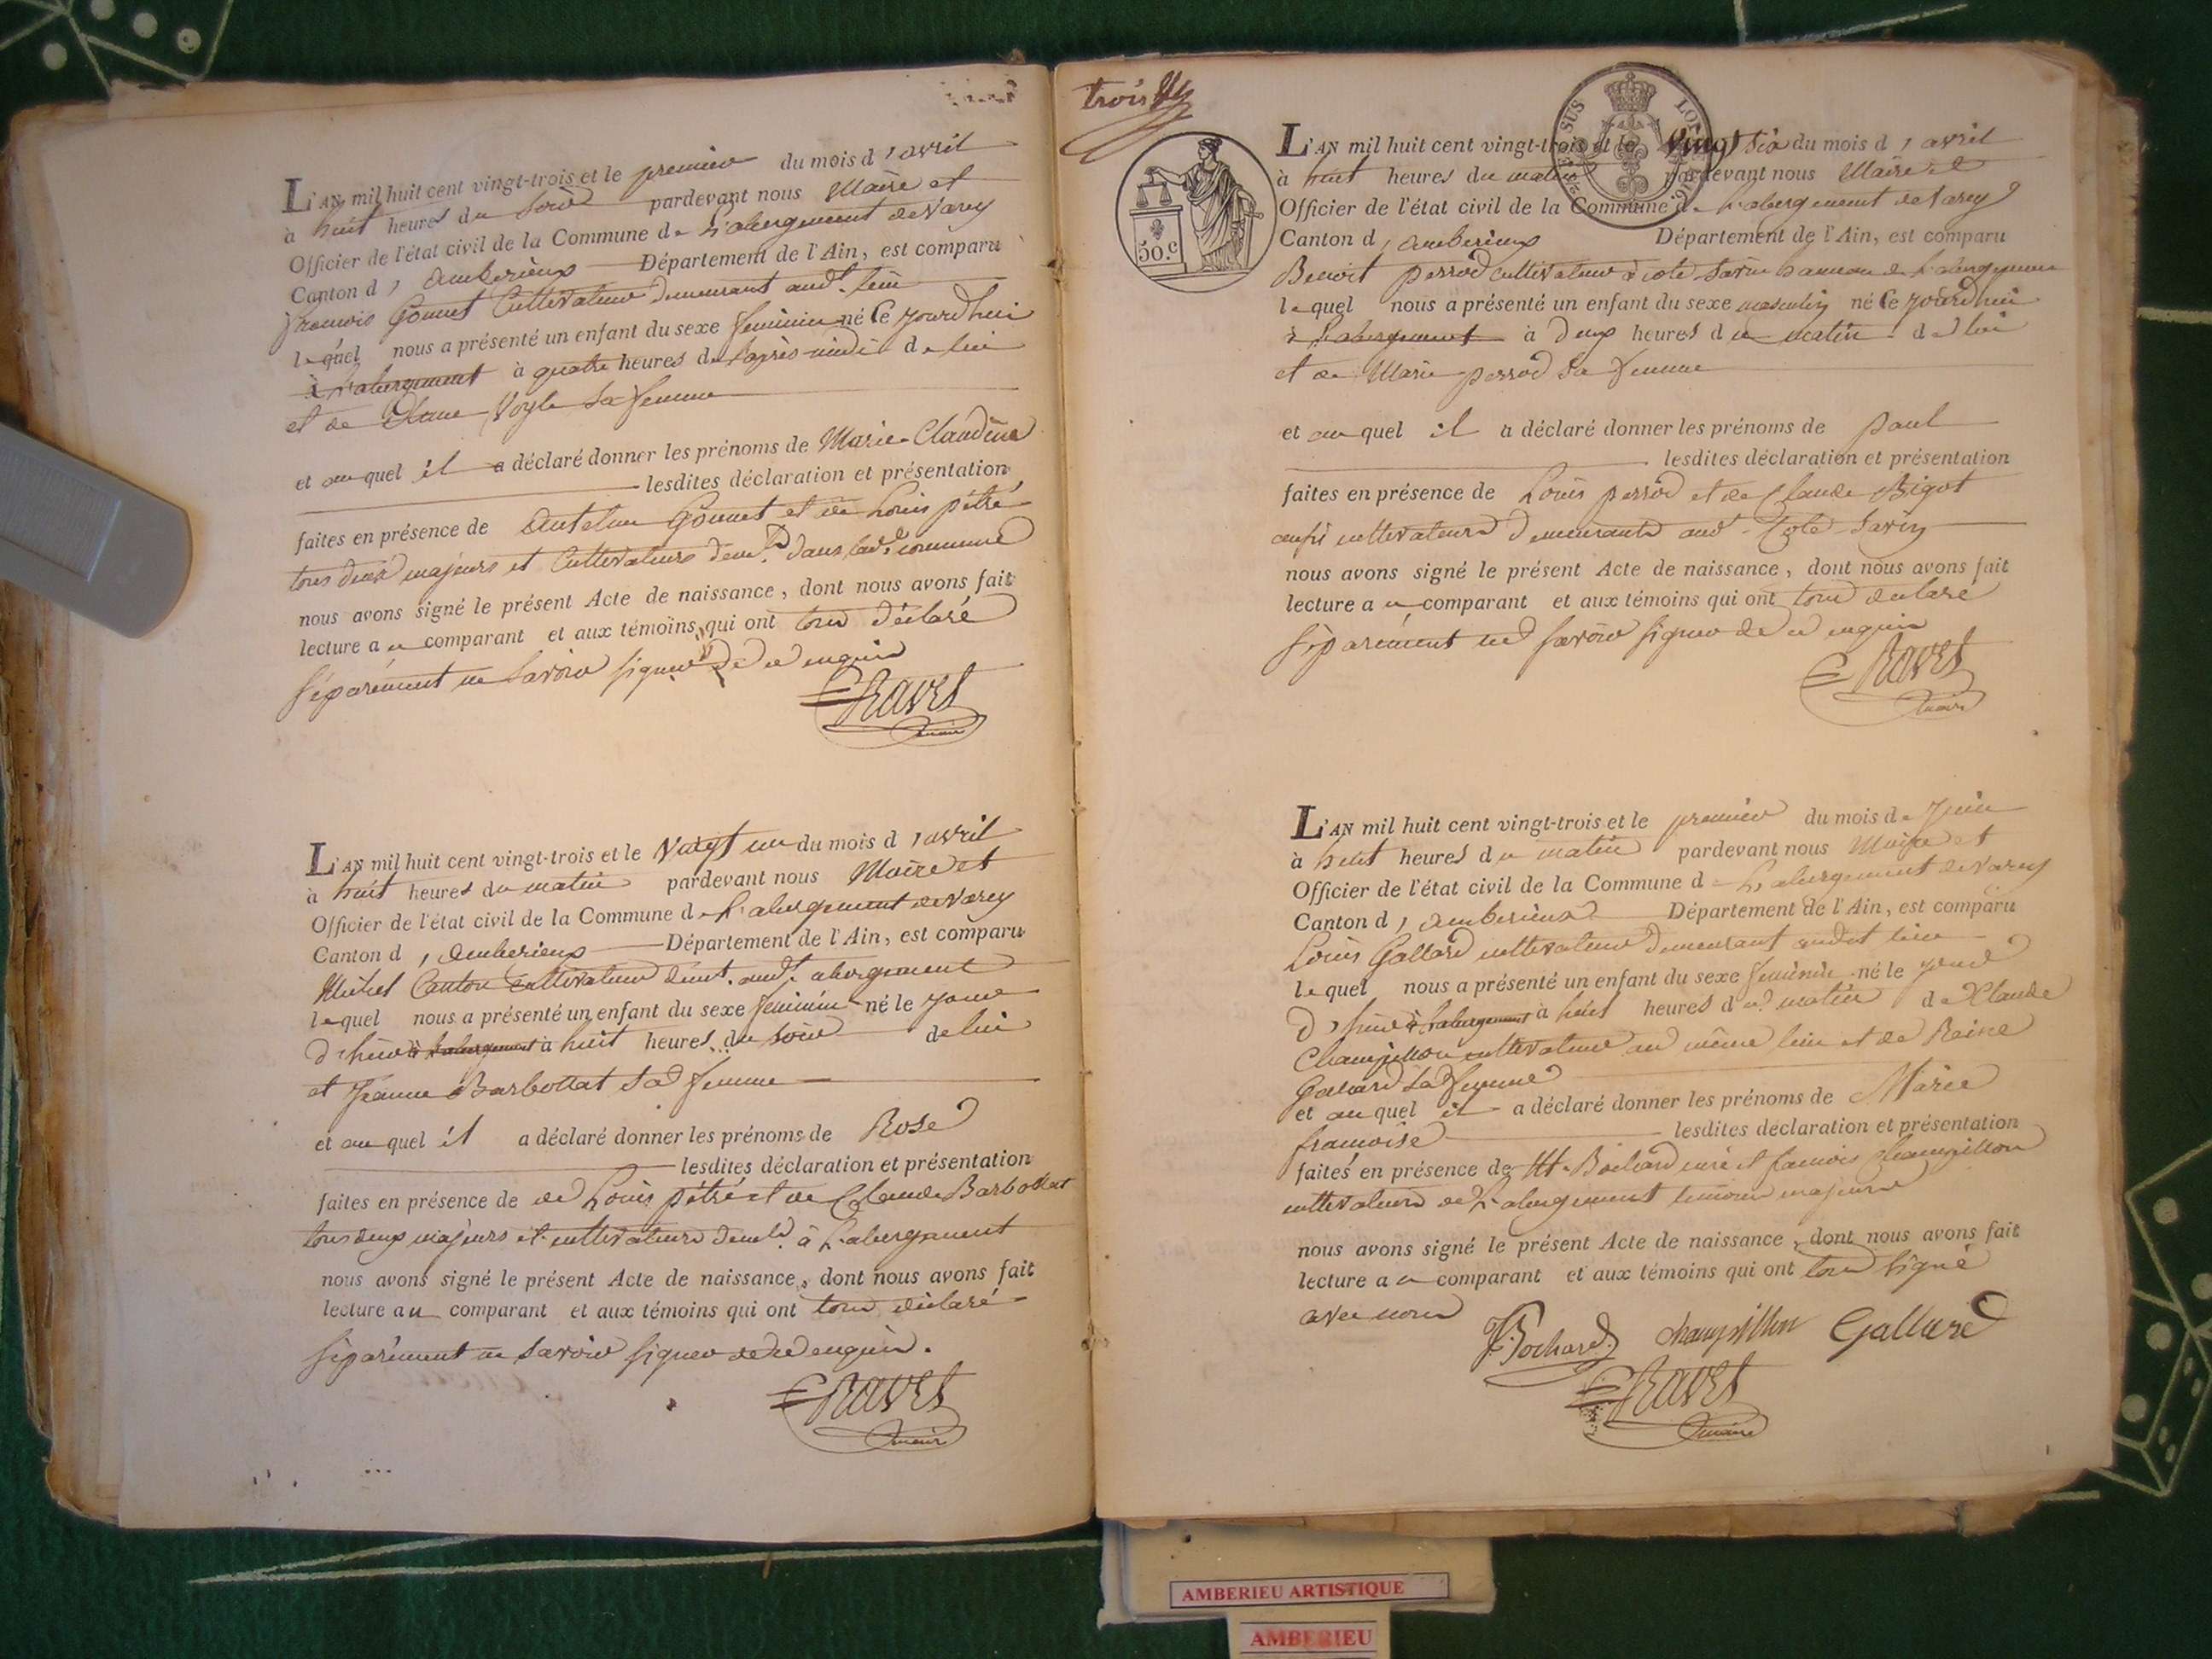 L'AN mil huit cent vingt-trois et le premier du mois d'avril
à huit heures du soir pardevant nous Maire et
Officier de l'état civil de la Commune de L'abergement de Varey
Canton d'Amberieux Département de l'Ain, est comparu
françois Gonnet Cultivateur demeurant aud. lieu
lequel nous a présenté un enfant du sexe feminin né Ce jourd'hui
à L'abergement à quatre heures de l'après midi de lui
et de Voyle sa femme
et auquel il a déclaré donner les prénoms de Marie-Claudine
lesdites déclaration et présentation
faites en présence de Antelme Gonnet et de Louis pétré
tous deux majeurs et Cultivateurs dem.ts dans lad.e commune
nous avons signé le présent Acte de naissance, dont nous avons fait
lecture au comparant et aux témoins qui ont tous déclaré
séparément ne savoir signer de ce enquis
Ravet
maire
L'AN mil huit cent vingt-trois et le Vingt un du mois d'avril
à huit heures du matin pardevant nous Maire et
Officier de l'état civil de la Commune de L'abergement de Varey
Canton d'Amberieux Département de l'Ain, est comparu
Michel Canton cultivateur demt. aud. abergement
lequel nous a présenté un enfant du sexe feminin né le jour
d'hier à L'abergement à huit heures du soir de lui
et Jeanne Barbottat sa femme
et auquel il a déclaré donner les prénoms de Rose
lesdites déclaration et présentation
faites en présence de de Louis pétré et de Claude Barbottat
tous deux majeurs et cultivateurs demts. à L'abergement
nous avons signé le présent Acte de naissance, dont nous avons fait
lecture au comparant et aux témoins qui ont tous déclaré
séparément ne savoir signer de ce enquis.
Ravet
maire
trois
50.c
SUS
L'AN mil huit cent vingt-trois et le Vingt six du mois d'avril
à huit heures du matin pardevant nous Maire et
Officier de l'état civil de la Commune de L'abergement de Varey
Canton d'Amberieux Département de l'Ain, est comparu
Benoit perrod cultivateur à cote Savin hameau de L'abergement
lequel nous a présenté un enfant du sexe masculin né Ce jourd'hui
à L'abergement à deux heures du matin de lui
et de Marie perrod sa femme
et auquel il a déclaré donner les prénoms de paul
lesdites déclaration et présentation
faites en présence de Louis perrod et de Claude Bigot
aussi cultivateurs demeurants aud. Cote Savin
nous avons signé le présent Acte de naissance, dont nous avons fait
lecture au comparant et aux témoins qui ont tous déclaré
séparément ne savoir signer de ce enquis
Ravet
maire
L'AN mil huit cent vingt-trois et le premier du mois de Juin
à huit heures du matin pardevant nous Maire et
Officier de l'état civil de la Commune de L'abergement de Varey
Canton d'Amberieux Département de l'Ain, est comparu
Louis Gallard cultivateur demeurant audit lieu
lequel nous a présenté un enfant du sexe feminin né le jour
d'hier à L'abergement à huit heures du matin de Claude
Champillon cultivateur au même lieu et de Reine
Gallard sa femme
et auquel il a déclaré donner les prénoms de Marie
françoise lesdites déclaration et présentation
faites en présence de Mr. Bochard curé et françois Champillon
cultivateur de L'abergement témoins majeurs
nous avons signé le présent Acte de naissance, dont nous avons fait
lecture au comparant et aux témoins qui ont tous signé
avec nous
Bochard champillon Gallard
Ravet
maire
AMBERIEU ARTISTIQUE
AMBERIEU